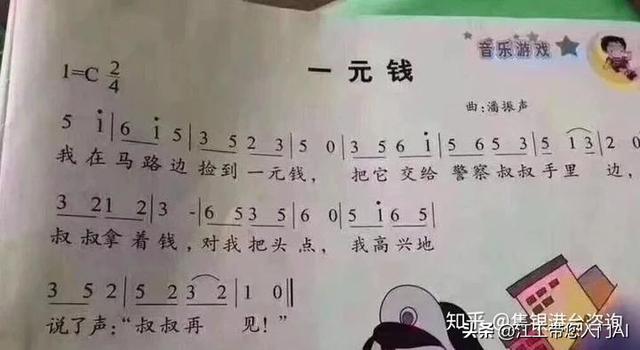 音乐游戏
1=C 2/4
一元钱
曲:潘振声
5 i|6 i 5|3 5 2 3|5 0|3 5 6 i|5 6 5 3|5 1 3|2 0
我在马路边捡到一元钱, 把它交给警察叔叔手里边,
3 21 2|3 -|6 5 3 5|6 0|5 i 6 5|
叔叔拿着钱,对我把头点, 我高兴地
3 5 2|5 2 3 2|1 0‖
说了声:“叔叔再见!”
知乎 @集钽港台咨询
头条 @江工带您入门AI